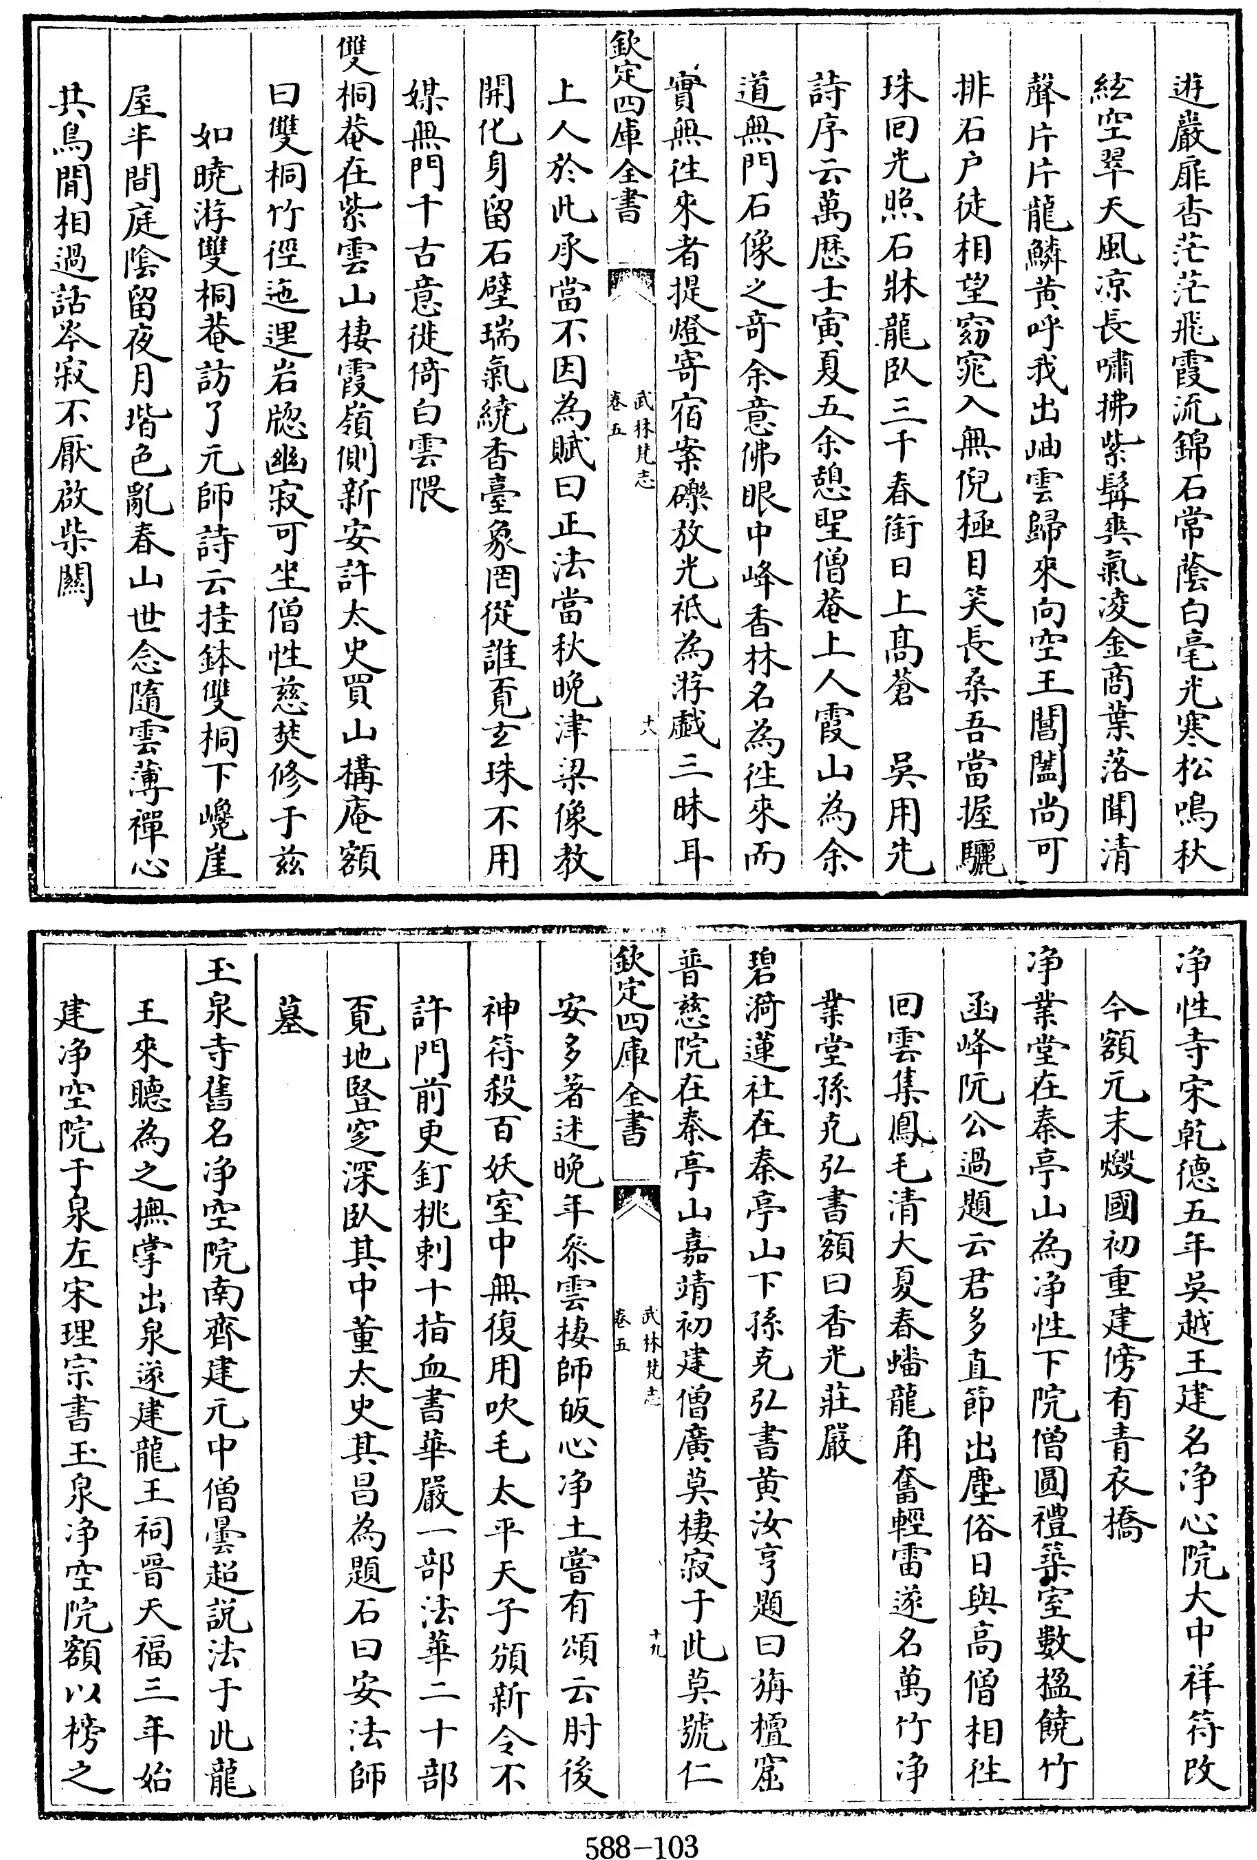 遊嚴扉杳茫茫飛霞流錦石常蔭白毫光寒松鳴秋
絃空翠天風凉長嘯拂紫髯爽氣凌金商葉落聞清
聲片片龍鱗黄呼我出岫雲歸來向空王閶闔尚可
排石户徒相望窈窕入無倪極目笑長桑吾當握驪
珠回光照石牀龍臥三千春銜日上髙蒼　吳用先
詩序云萬歴壬寅夏五余憩聖僧菴上人霞山為余
道無門石像之奇余意佛眼中峰香林名為徃來而
實無徃來者提燈寄宿案礫放光祗為游戲三昧耳
欽定四庫全書
武林梵志
卷五
十八
上人於此承當不因為賦曰正法當秋晚津梁像教
開化身留石壁瑞氣繞香臺象罔從誰覓玄珠不用
媒無門千古意徙倚白雲隈
雙桐菴在紫雲山棲霞嶺側新安許太史買山構庵額
曰雙桐竹徑迤逕岩牕幽寂可坐僧性慈焚修于兹
如曉游雙桐菴訪了元師詩云挂鉢雙桐下巉崖
屋半間庭陰留夜月堦色亂春山世念隨雲薄禪心
共鳥閒相過話岑寂不厭啟柴關
净性寺宋乾德五年吳越王建名净心院大中祥符改
今額元末燬國初重建傍有青衣橋
净業堂在秦亭山為净性下院僧圓禮築室數楹饒竹
函峰阮公過題云君多直節出塵俗日與高僧相徃
回雲集鳳毛清大夏春蟠龍角奮輕雷遂名萬竹净
業堂孫克弘書額曰香光莊嚴
碧漪蓮社在秦亭山下孫克弘書黄汝亨題曰旃檀窟
普慈院在秦亭山嘉靖初建僧廣莫棲寂于此莫號仁
欽定四庫全書
武林梵志
卷五
十九
安多著述晚年叅雲棲師皈心净土嘗有頌云肘後
神符殺百妖室中無復用吹毛太平天子頒新令不
許門前更釘桃刺十指血書華嚴一部法華二十部
覓地豎窆深臥其中董太史其昌為題石曰安法師
墓
玉泉寺舊名净空院南齊建元中僧曇超説法于此龍
王來聽為之撫掌出泉遂建龍王祠晉天福三年始
建净空院于泉左宋理宗書玉泉净空院額以榜之
588-103